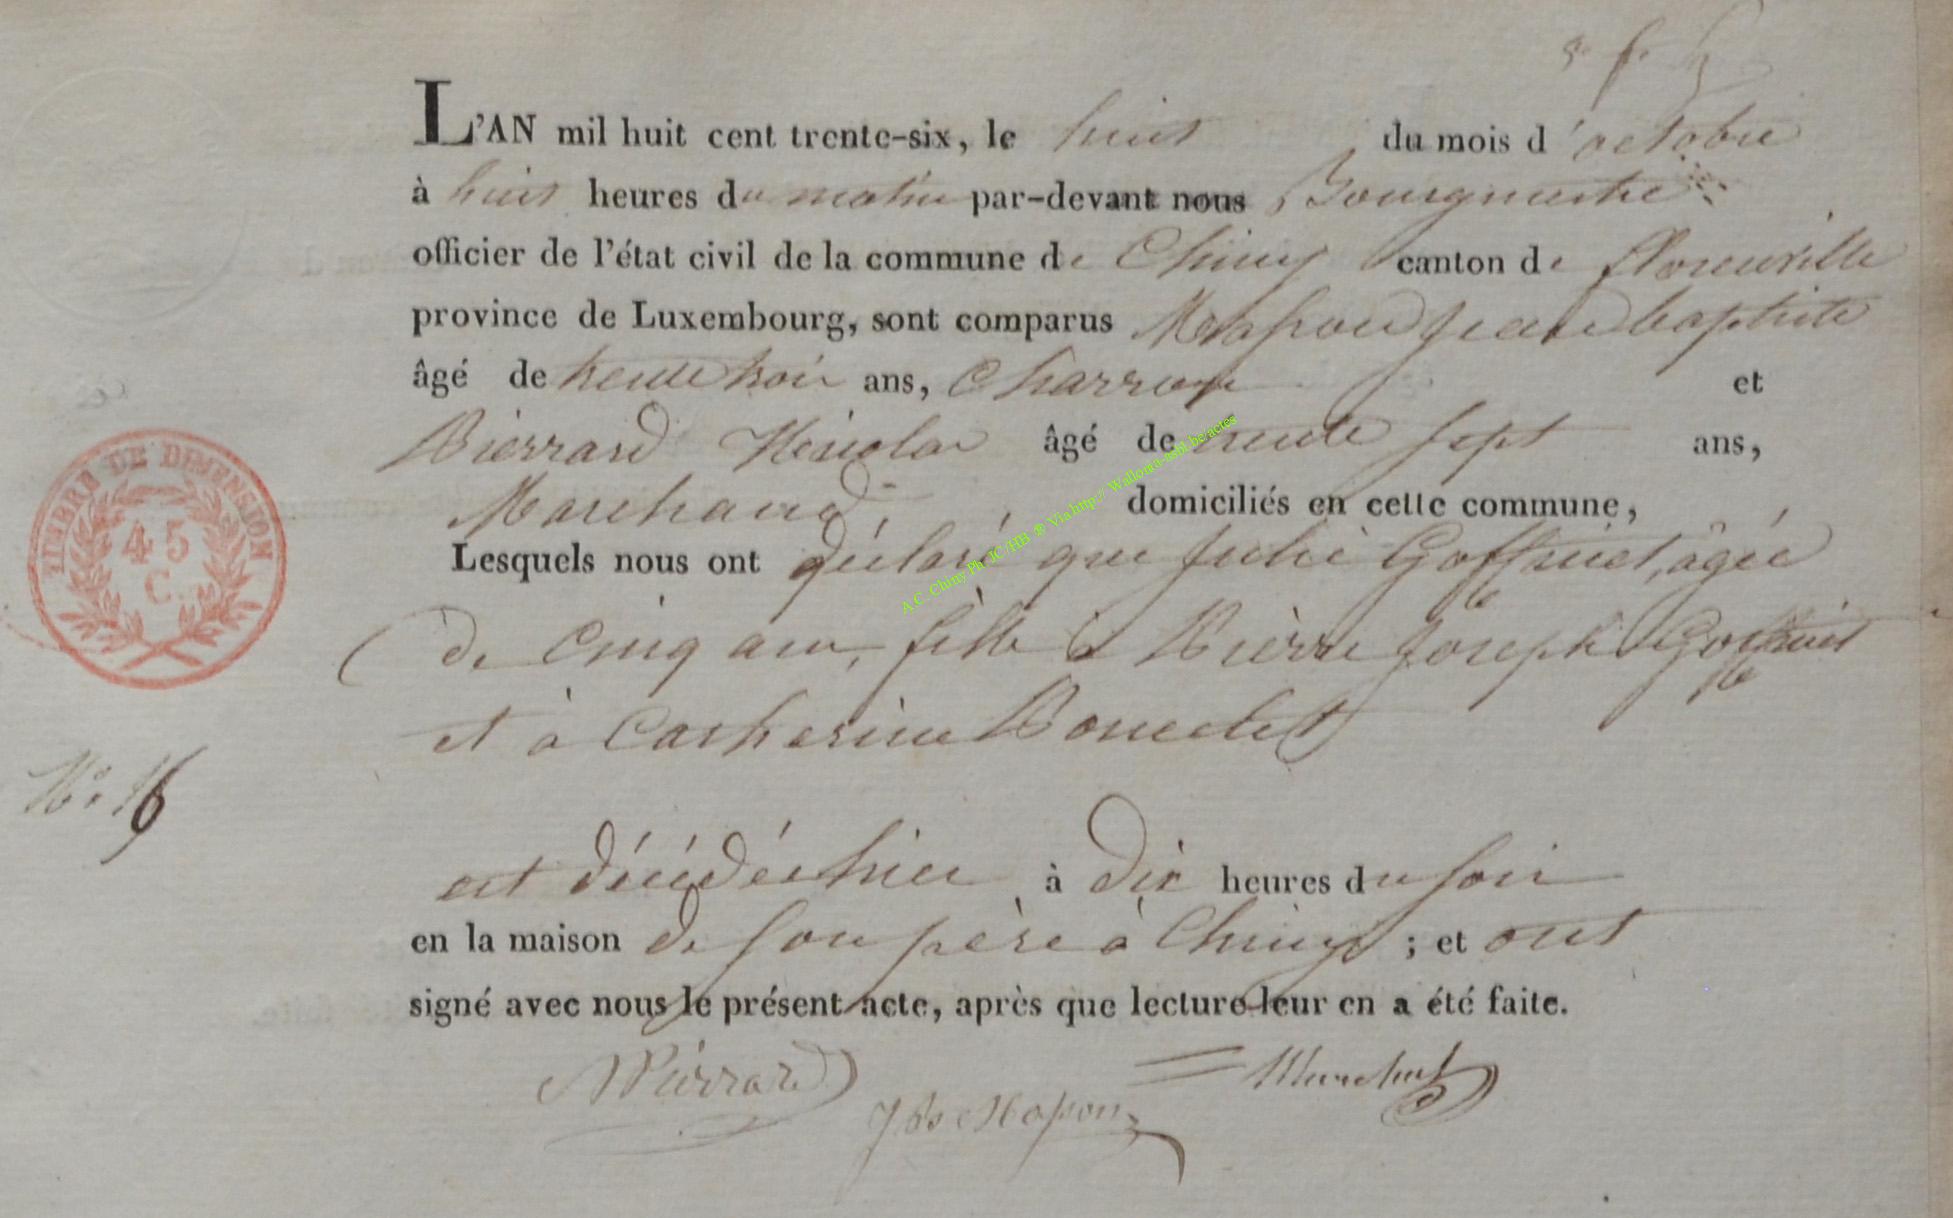 L'AN mil huit cent trente-six, le huit du mois d'octobre
à huit heures du matin par-devant nous Bourgmestre
officier de l'état civil de la commune de Chiny canton de florenville
province de Luxembourg, sont comparus jean baptiste
âgé de trente trois ans, Charron et
Pierrard Nicolas âgé de trente sept ans,
Marchand domiciliés en cette commune,
Lesquels nous ont déclaré que Julie Goffinet, âgée
de Cinq ans, fille à Pierre Joseph Goffinet
et à Catherine
est décédée hier à dix heures du soir
en la maison de son père à Chiny ; et ont
signé avec nous le présent acte, après que lecture leur en a été faite.
NPierrard
TIMBRE DE DIMENSION
45
C.
N° 16
A.C. Chiny Ph. JC/HB ® Via http:// Wallonia-asbl.be/actes